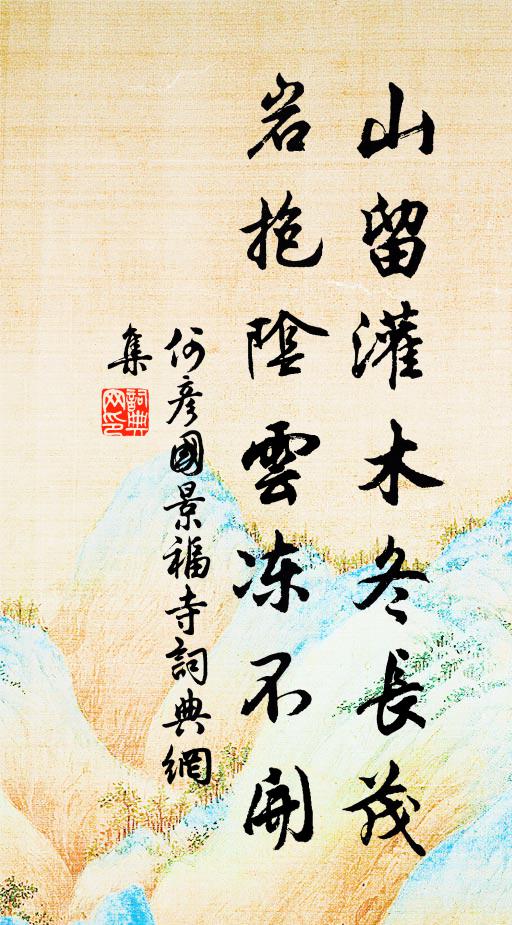 山留灌木冬長茂
岩抱陰雲冻不開
何彦國景福寺詞典網
集
詞典網印